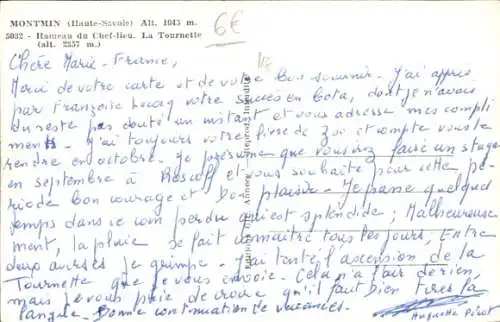 MONTMIN (Haute-Savoie) Alt. 1045 m.
5032 - Hameau du Chef-lieu. La Tournette
(alt. 2357 m.)
6€
Chère Marie-France,
Merci de votre carte et de votre bon souvenir. J'ai appris
par Françoise votre succès en bota, dont je n'avais
du reste pas douté un instant et vous adresse mes compli
ments - J'ai toujours votre livre de Zoo et compte vous le
rendre en octobre. Je présume que vous irez faire un stage
en septembre à Roscoff et vous souhaite pour cette pé-
riode bon courage et bon plaisir - Je passe quelque
temps dans ce coin perdu qui est splendide ; Malheureuse
ment, la pluie se fait connaître tous les jours, Entre
deux averses je grimpe. J'ai tenté l'ascension de la
Tournette que je vous envoie. Cela n'a l'air de rien,
mais je vous prie de croire qu'il faut bien tirer la
langue. Bonne continuation de vacances.
Huguette